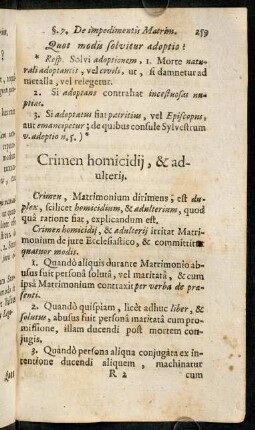 §. 7. De impedimentis Matrim. 259
Quot modis solvitur adoptio?
* Resp. Solvi adoptionem, 1. Morte natu-
rali adoptantis, vel civili, ut, si damnetur ad
metalla, vel relegetur.
2. Si adoptans contrahat incestuosas nu-
ptias.
3. Si adoptatus fiat patritius, vel Episcopus,
aut emancipetur; de quibus consule Sylvestrum
v. adoptio n. 5. )*
Crimen homicidij, & ad-
ulterij.
Crimen, Matrimonium dirimens; est du-
plex, scilicet homicidium, & adulterium, quod
quâ ratione fiat, explicandum est.
Crimen homicidij, & adulterij irritat Matri-
monium de jure Ecclesiastico, & committitur
quatuor modis.
1. Quandò aliquis durante Matrimonio ab-
usus fuit personâ solutâ, vel maritatâ, & cum
ipsâ Matrimonium contraxit per verba de præ-
senti.
2. Quandò quispiam, licèt adhuc liber, &
solutus, abusus fuit personâ maritatâ cum pro-
missione, illam ducendi post mortem con-
jugis.
3. Quandò persona aliqua conjugata ex in-
tentione ducendi aliquem, machinatur
R 2 cum